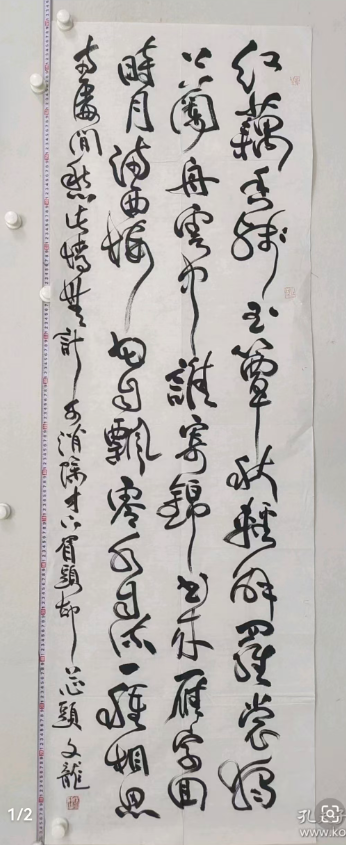 红藕香残玉簟秋輕解羅裳獨
上蘭舟雲中誰寄錦書来雁字回
時月满西樓花自飄零水自流一種相思
兩處间愁此情無計可消除才下眉頭却上心頭 文龍
1/2
孔
www.ko